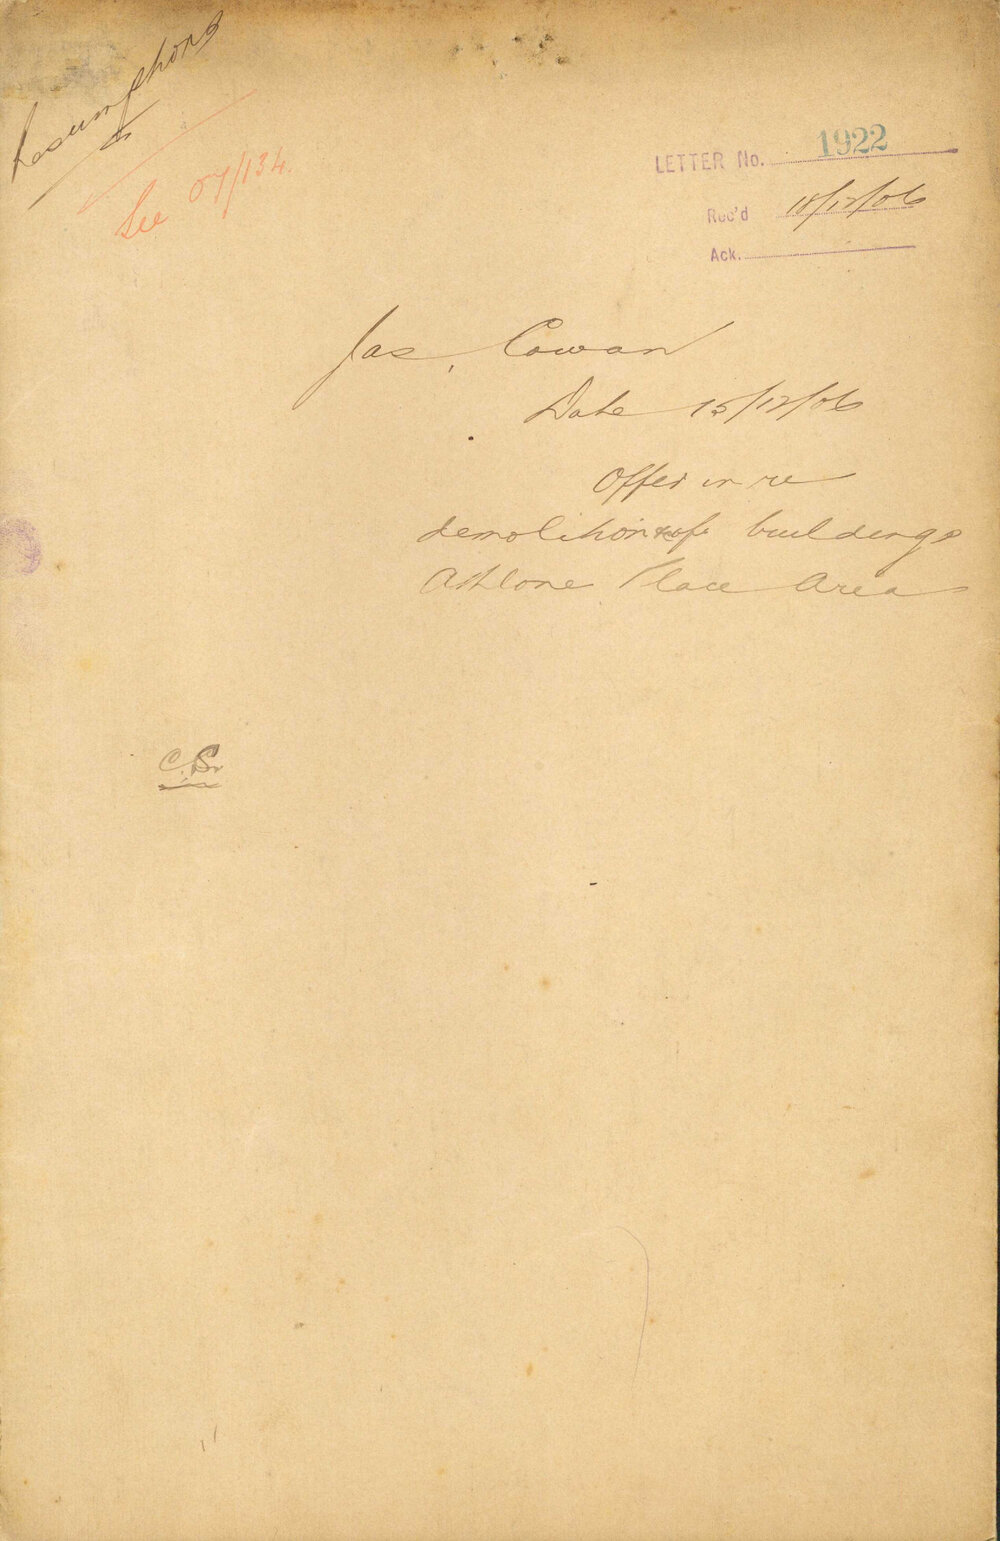 Resumptions
See 07/134.
LETTER No. 1922
Rec'd 18/12/06
Ack.
Jas, Cowan
Date 15/12/06
Offer in re
demolition &c of buildings
Athlone Place Area